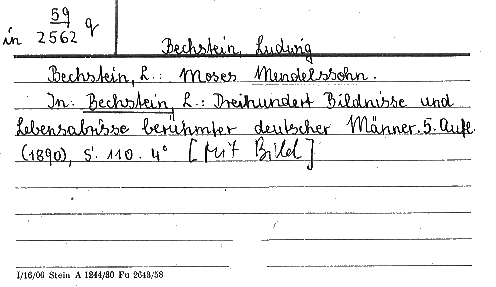 in 59/2562 q
Bechstein, Ludwig
Bechstein, L.: Moses Mendelssohn.
In: Bechstein, L.: Dreihundert Bildnisse und
Lebensabrisse berühmter deutscher Männer. 5. Aufl.
(1890), S. 110. 4° [Mit Bild]
I/16/09 Stein A 1244/80 Fu 2648/58